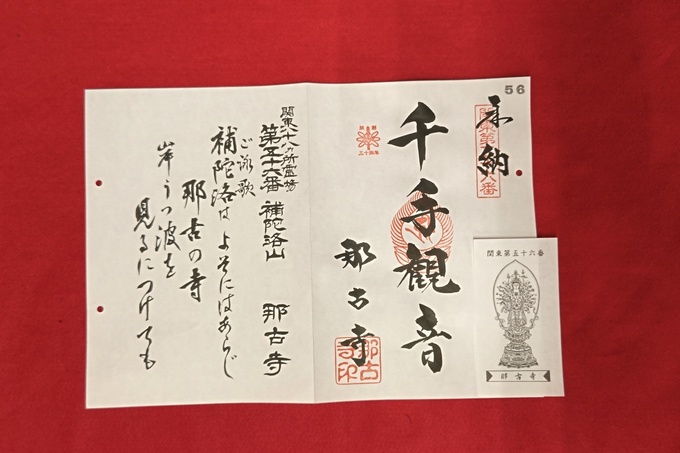 56
奉納
関東第五十六番
千手観音
那古寺
那古寺印
関東八十八ヵ所霊場
第五十六番 補陀洛山 那古寺
ご詠歌
補陀洛は よそにはあらじ
那古の寺
岸うつ波を
見るにつけても
関東第五十六番
那古寺